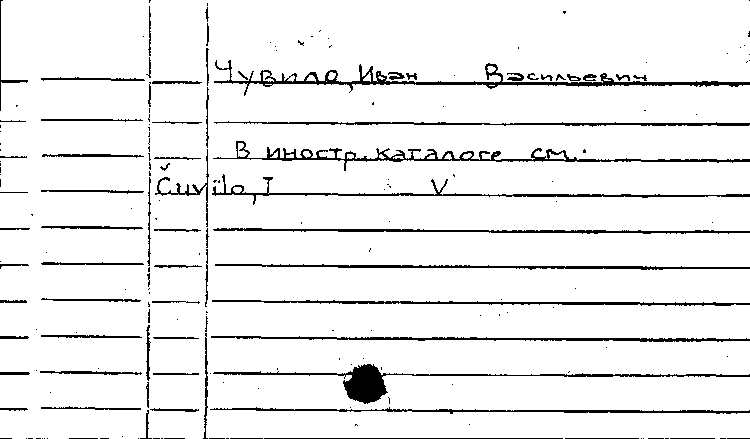 Чувило, Иван Васильевич
В иностр. каталоге см.:
Čuvilo, I V